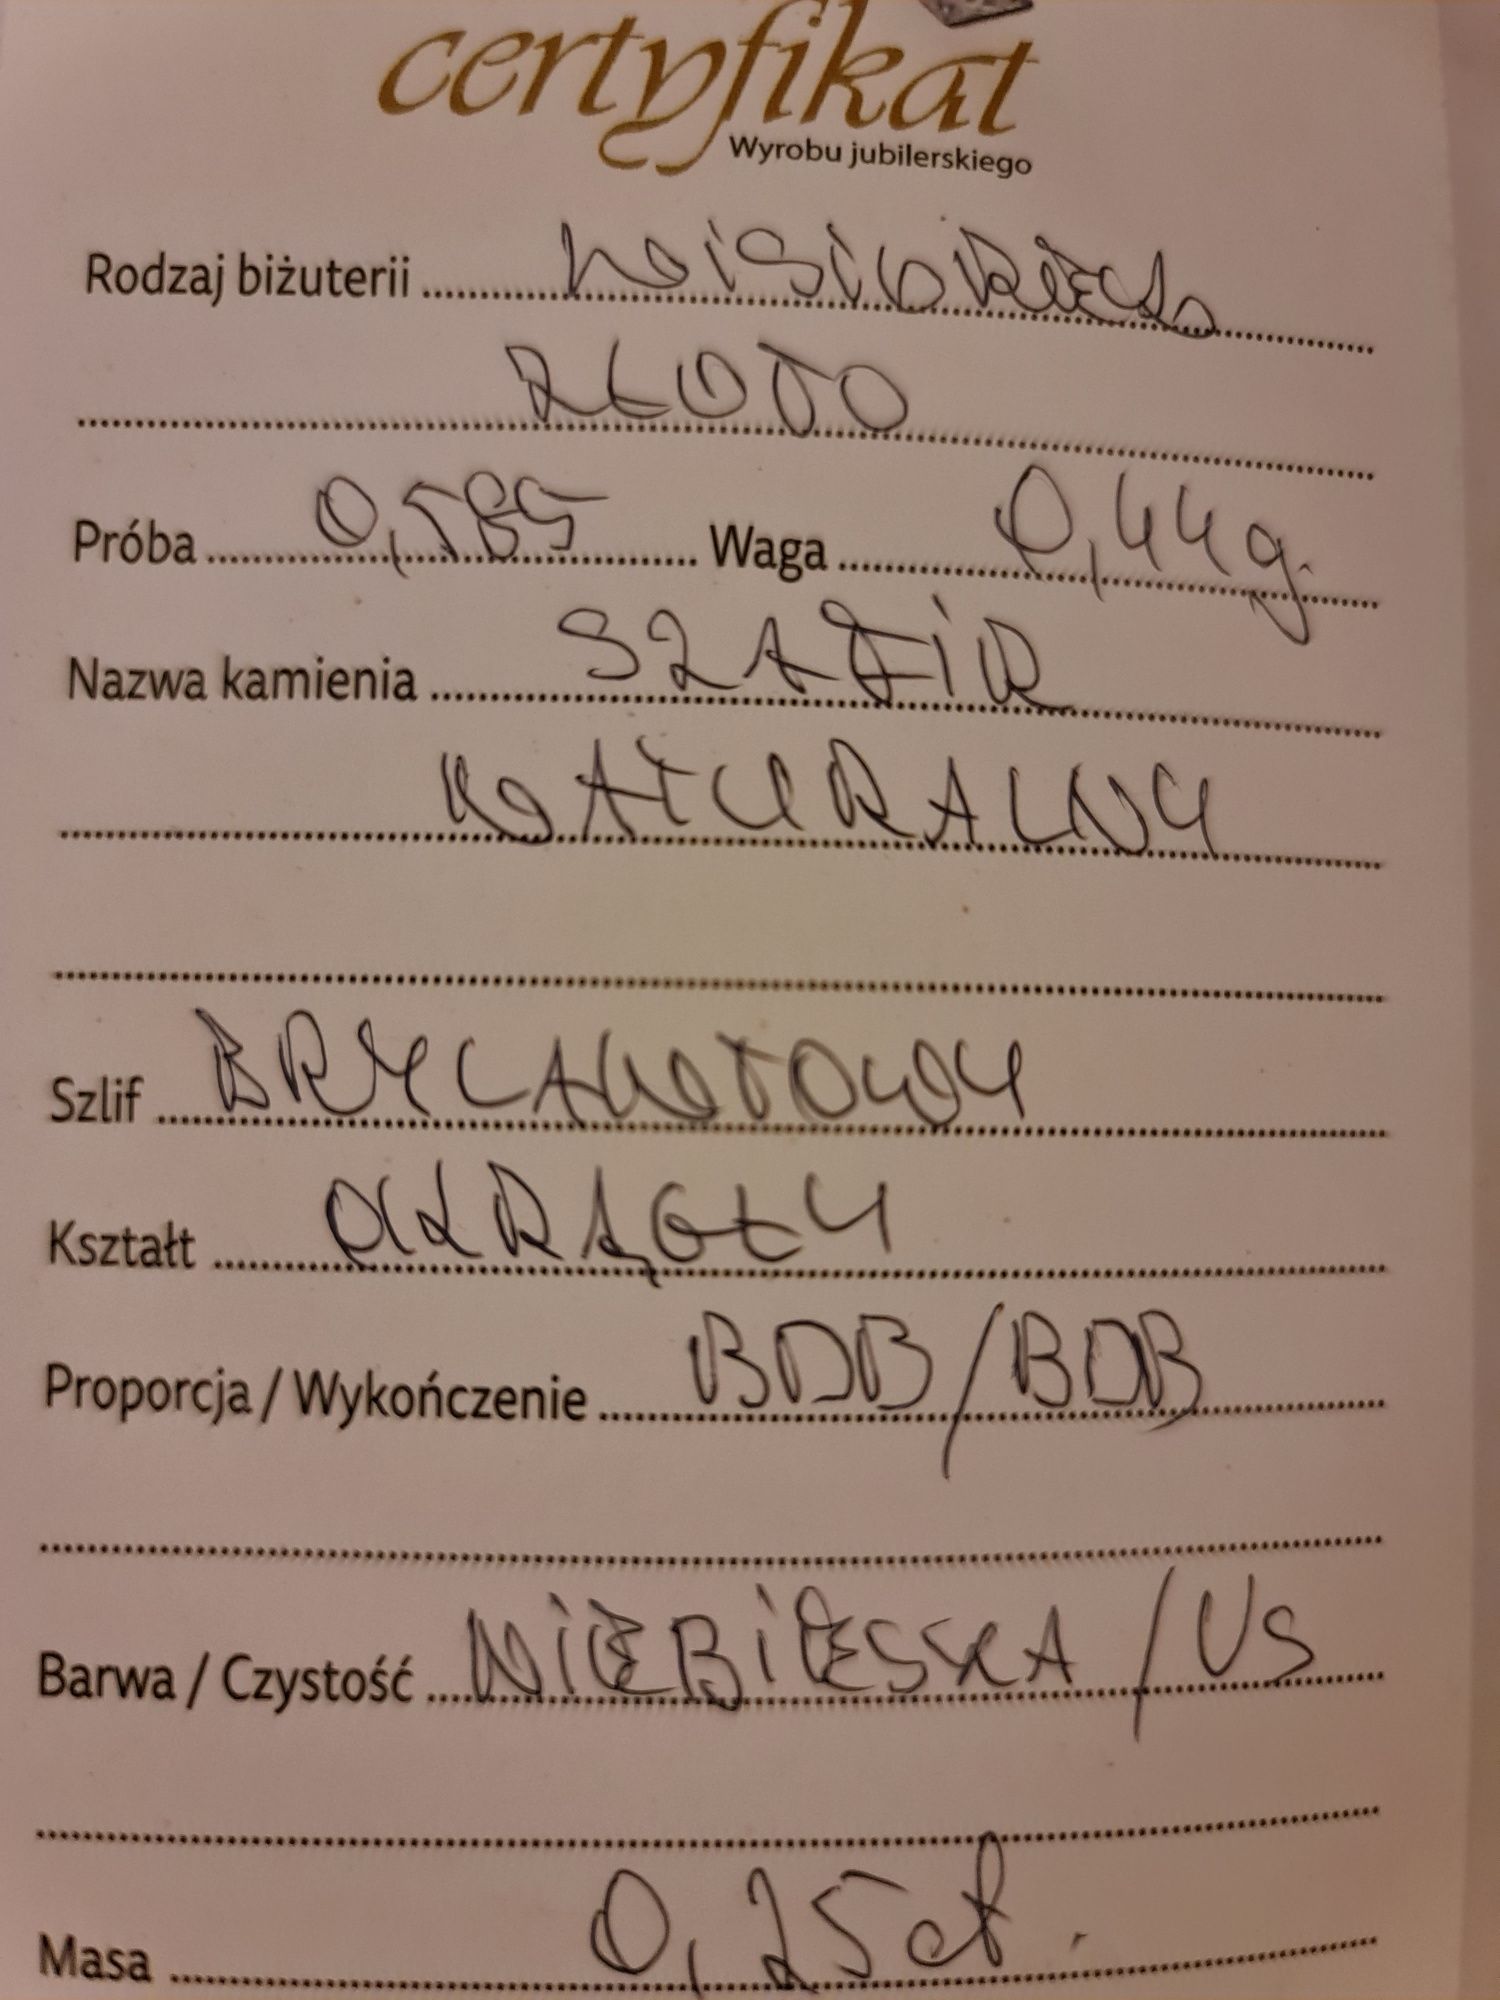 certyfikat
Wyrobu jubilerskiego
Rodzaj biżuterii
ZŁOTO
Próba 0,585 Waga 0,44g.
Nazwa kamienia SZAFIR
NATURALNY
Szlif BRYLANTOWY
Kształt OKRĄGŁY
Proporcja / Wykończenie BDB/BDB
Barwa / Czystość NIEBIESKA / VS
Masa 0,25ct.